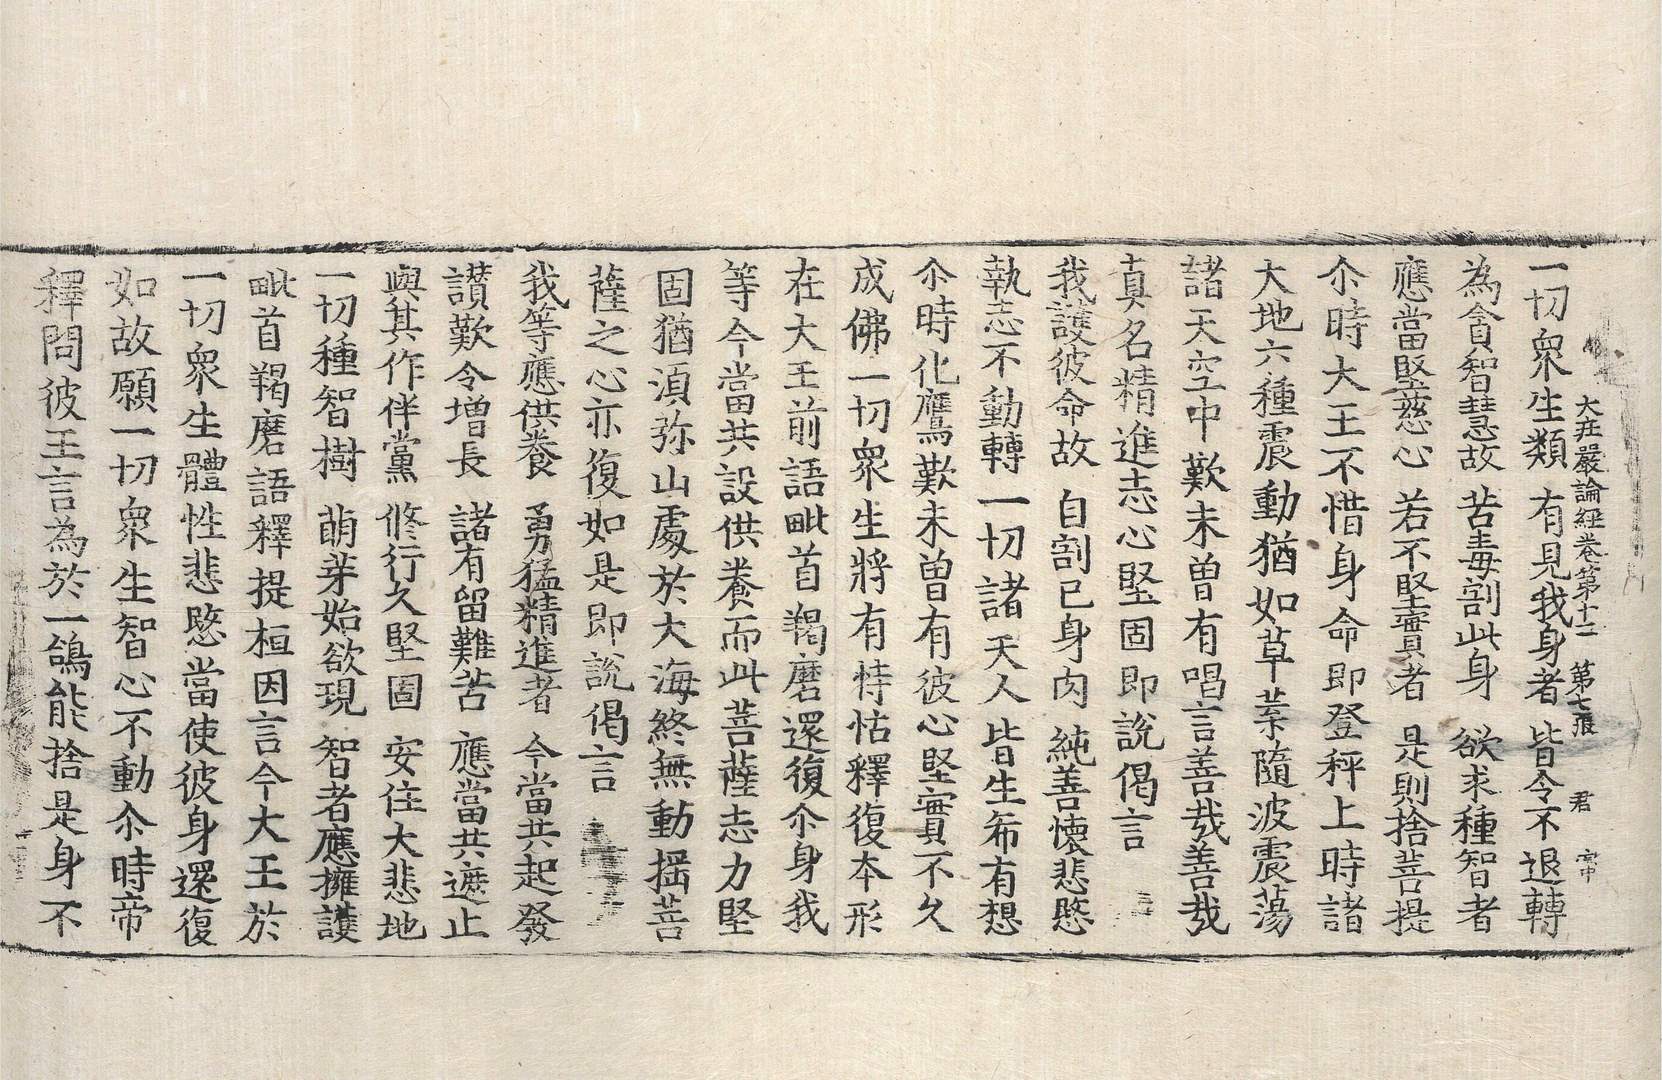 大莊嚴論經卷第十二 第七張 君
一切衆生類 有見我身者 皆令不退轉
為貪智慧故 苦毒割此身 欲求種智者
應當堅慈心 若不堅實者 是則捨菩提
尒時大王不惜身命即登秤上時諸
大地六種震動猶如草葉隨波震蕩
諸天空中歎未曾有唱言善哉善哉
真名精進志心堅固即說偈言
我護彼命故 自割己身肉 純善懷悲愍
執志不動轉 一切諸天人 皆生希有想
尒時化鷹歎未曾有彼心堅實不久
成佛一切衆生將有恃怙釋復本形
在大王前語毗首羯磨還復尒身我
等今當共設供養而此菩薩志力堅
固猶須弥山處於大海終無動搖菩
薩之心亦復如是即說偈言
我等應供養 勇猛精進者 今當共起發
讃歎令增長 諸有留難苦 應當共遮止
與其作伴黨 修行久堅固 安住大悲地
一切種智樹 萌芽始欲現 智者應擁護
毗首羯磨語釋提桓因言今大王於
一切衆生體性悲愍當使彼身還復
如故願一切衆生智心不動尒時帝
釋問彼王言為於一鴿能捨是身不